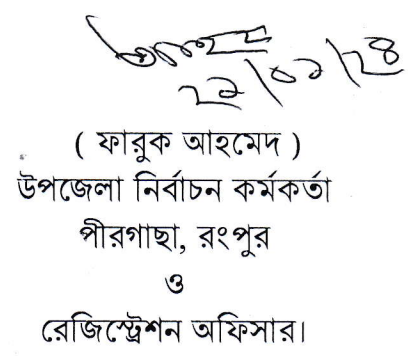 ( ফারুক আহমেদ )
উপজেলা নির্বাচন কর্মকর্তা
পীরগাছা, রংপুর
ও
রেজিস্ট্রেশন অফিসার।